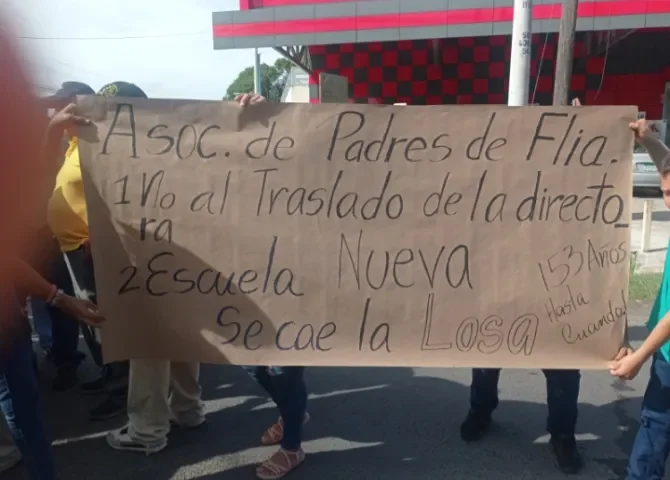 Asoc. de Padres de Flia.
1 No al Traslado de la directo_
ra
2 Escuela Nueva
Se cae la Losa
153 Años
Hasta
Cuando!